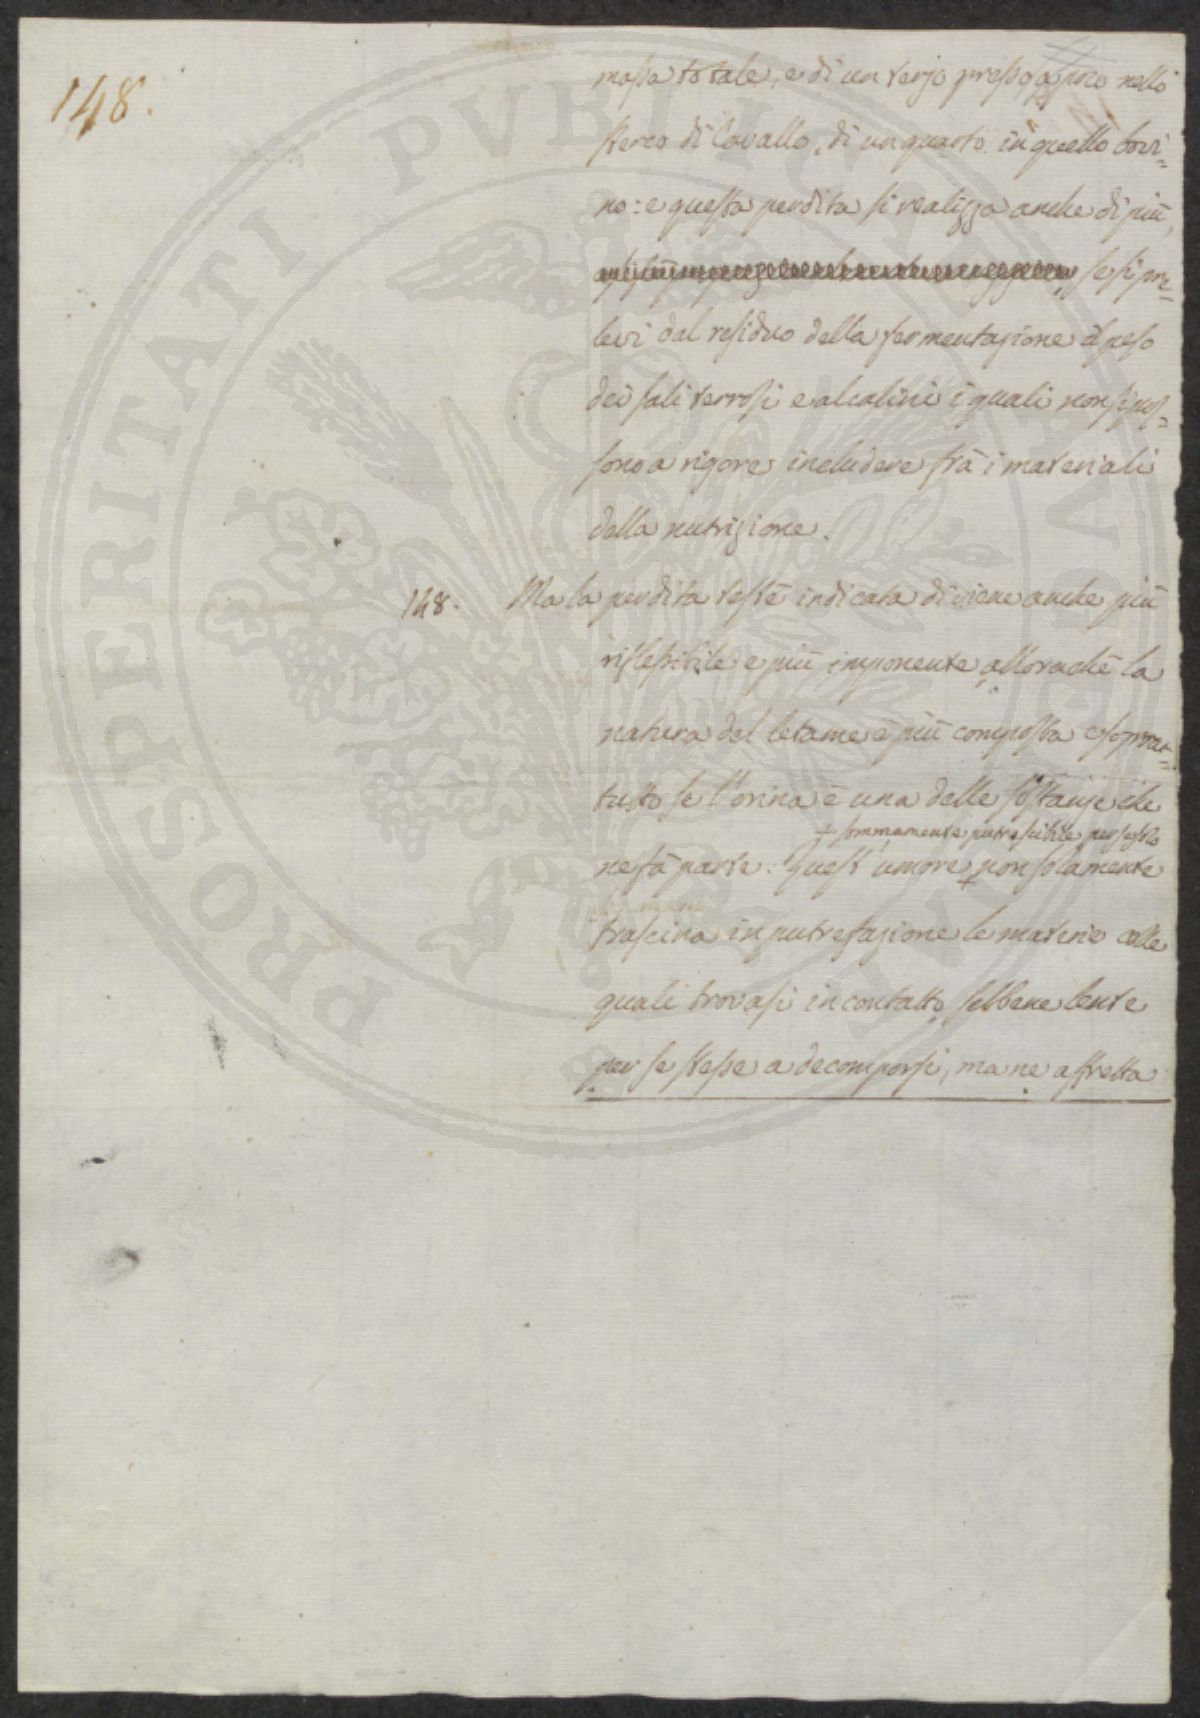 148.
massa totale, e di un terzo presso a poco nello
sterco di Cavallo, di un quarto in quello bovi=
no: e questa perdita si realizza anche di più,
se si pre=
levi dal residuo della fermentazione il peso
dei sali terrosi e alcalini i quali non si pos=
sono a rigore includere frà i materiali
della nutrizione.
148. Ma la perdita testè indicata diviene anche più
riflessibile e più imponente allorachè la
natura del letame è più composta e soprat=
tutto se l'orina è una delle sostanze che
+ sommamente putrescibile per se stesso
ne fà parte: quest'umore + non solamente
trascina in putrefazione le materie colle
quali trovasi in contatto sebbene lente
per se stesse a decomporsi, ma ne affretta
PROSPERITATI PVBLICAE